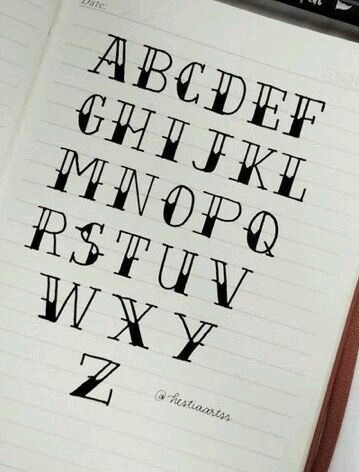 Date:
ABCDEF
GHIJKL
MNOPQ
RSTUV
WXY
Z
@hestiaartss